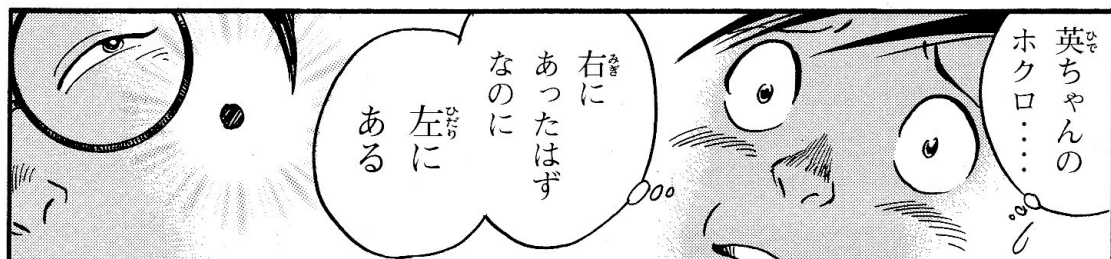 英ちゃんの
ホクロ‥‥
右に
あったはず
なのに
左に
ある